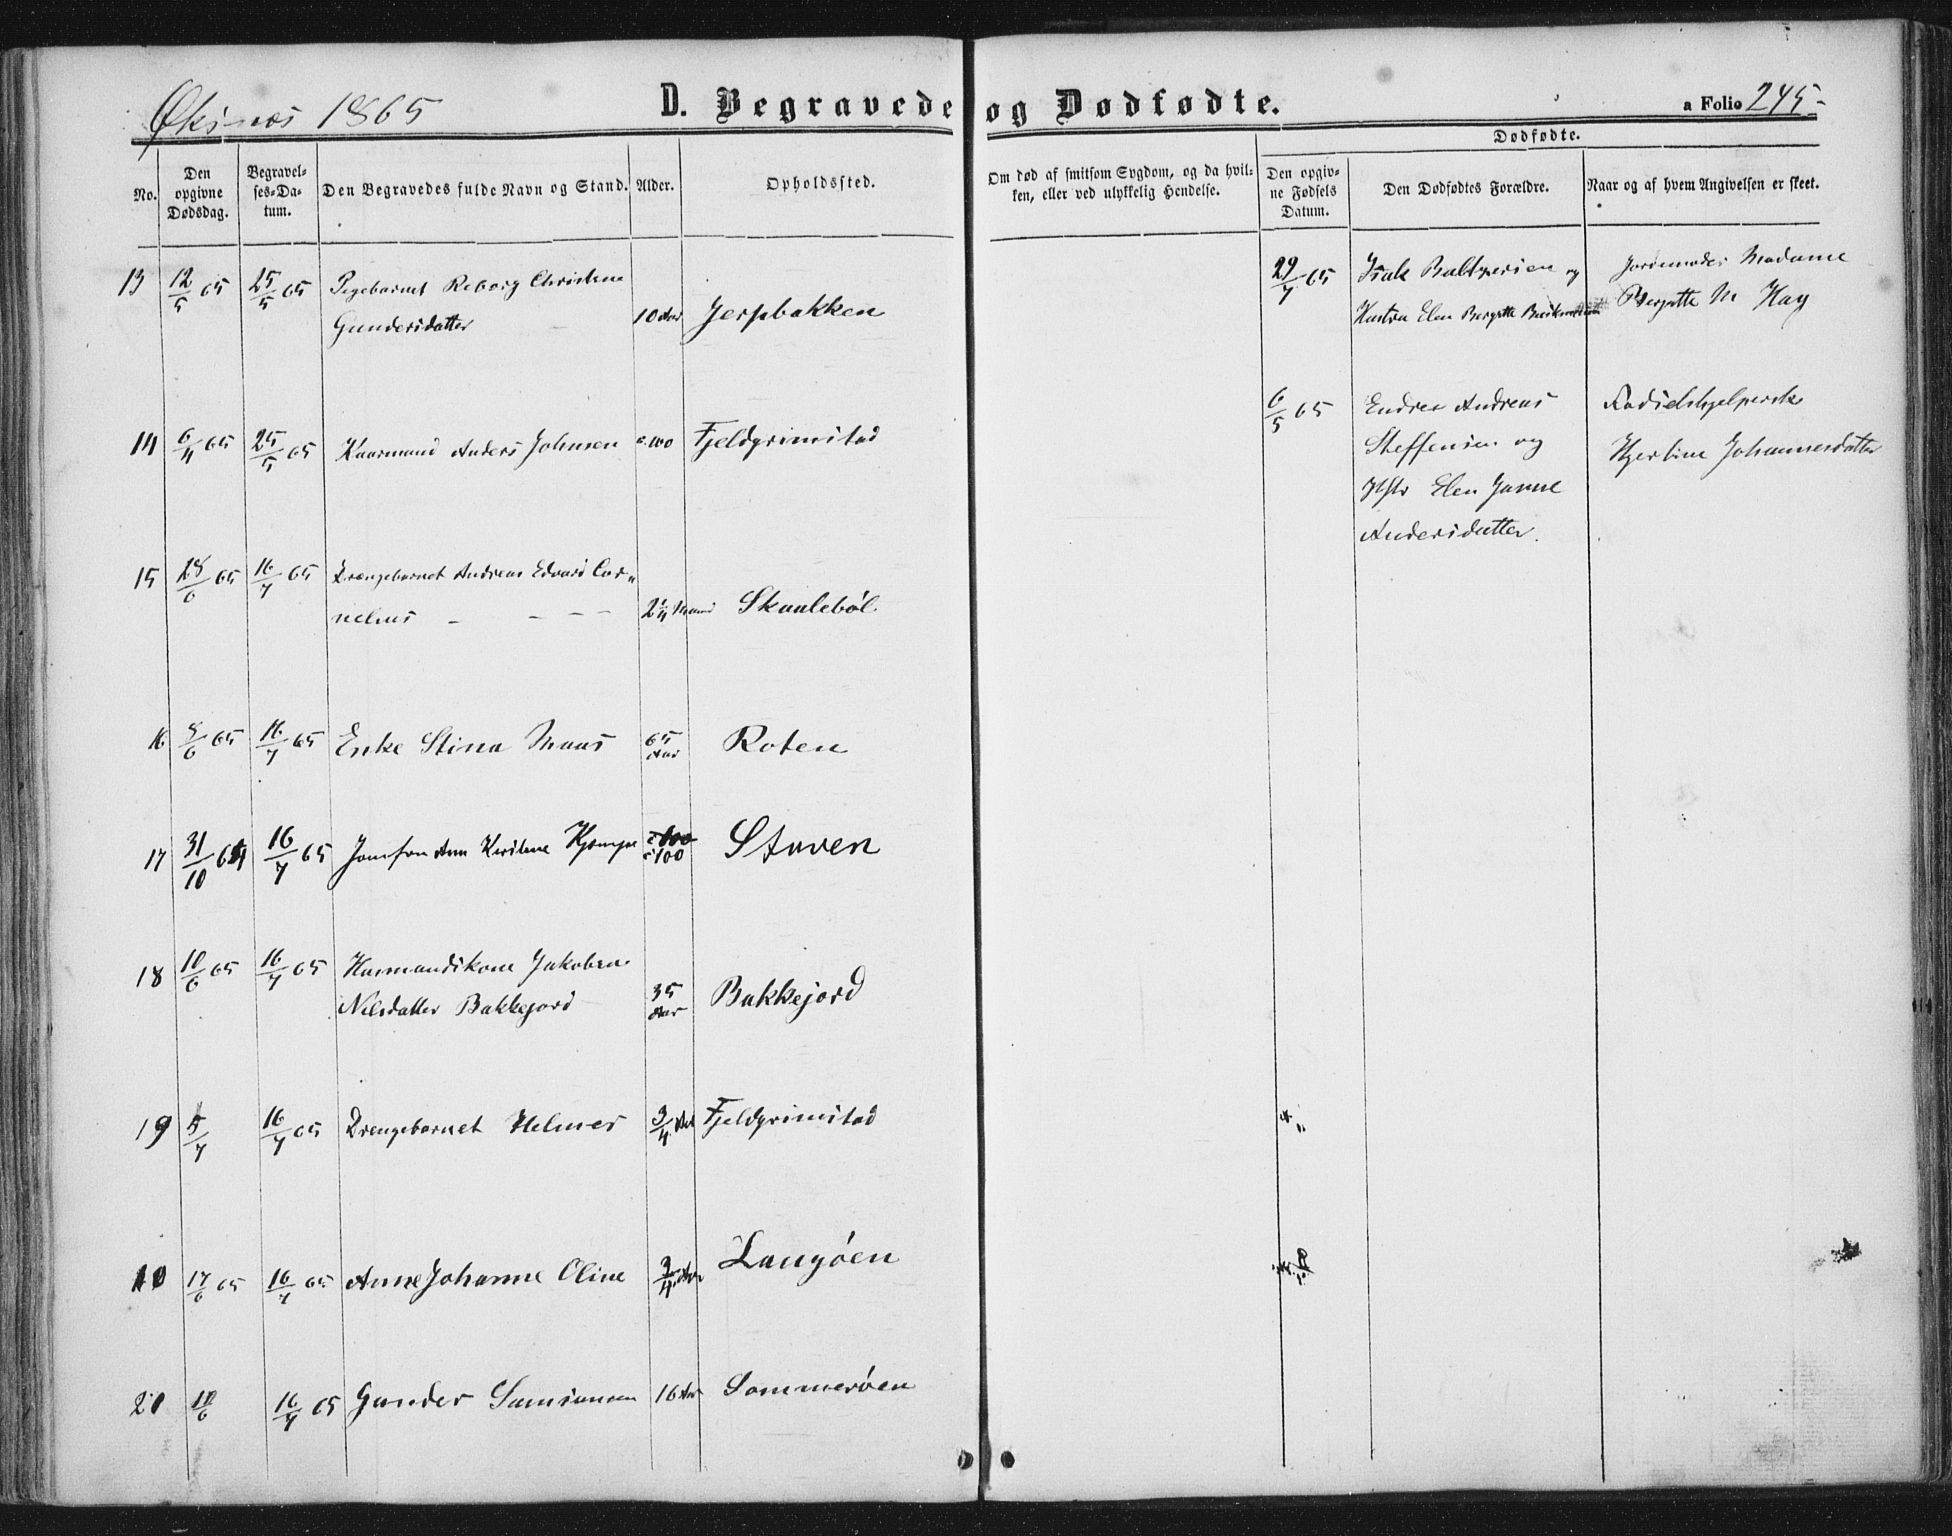 Øksnæs 1865 D. Begravede og Dødfødte. a Folio 245
Dødfødte.
No. Den opgivne Dødsdag. Begravelses-Datum. Den Begravedes fulde Navn og Stand. Alder. Opholdssted. Om død af smitsom Sygdom, og da hvilken, eller ved ulykkelig Hendelse. Den opgivne Fødsels Datum. Den Dødfødtes Forældre. Naar og af hvem Angivelsen er skeet.
13 12/5 65 25/5 65 Pigebarnet Reborg Christine
Gundersdatter 10 Aar Jerpbakken
14 6/4 65 25/5 65 Kaarmand Anders Johnsen c. 100 Fjeldgrimstad
15 28/6 65 16/7 65 Drengebarnet Andreas Edvard Cor-
nelius 2 1/4 Skaalebøl
16 65 16/7 65 Enke Stina Maas 65 Aar Roten
17 31/10 64 16/7 65 Jomfru Ann c 100 Staven
18 10/6 65 16/7 65 Kaarmandskone Jakobea
Nilsdatter Bakkejord 35 Aar Bakkejord
19 5/7 16/7 65 Drengebarnet Helmer 3/4 Aar Fjeldgrimstad
17/6 65 16/7 65 Anne Johanne Oline 3/4 Aar Langøen
16/7 65 Gunder Samsonsen 16 Aar Sommerøen
29/7 65 Isak Baltzersen og
Hustru Elen Bergitte
Jordemoder Madame
Bergitte M Kay
6/5 65 Endre Andreas
Steffensen og
Hstr Elen Janne
Andersdatter.
Fødselshjelperske
Johannesdatter